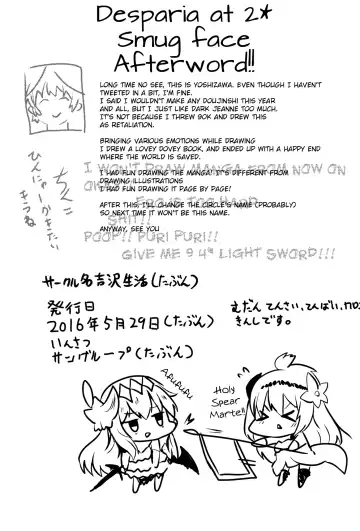 Desparia at 2*
Smug face
Afterword!!
LONG TIME NO SEE, THIS IS YOSHIZAWA. EVEN THOUGH I HAVEN'T
TWEETED IN A BIT, I'M FINE.
I SAID I WOULDN'T MAKE ANY DOUJINSHI THIS YEAR
AND ALL, BUT I JUST LIKE DARK JEANNE TOO MUCH.
IT'S NOT BECAUSE I THREW 90K AND DREW THIS
AS RETALIATION.
BRINGING VARIOUS EMOTIONS WHILE DRAWING
I DREW A LOVEY DOVEY BOOK, AND ENDED UP WITH A HAPPY END
WHERE THE WORLD IS SAVED.
I WON'T DRAW MANGA FROM NOW ON
I HAD FUN DRAWING THE MANGA! IT'S DIFFERENT FROM
DRAWING ILLUSTRATIONS
I HAD FUN DRAWING IT PAGE BY PAGE!
TOO HARD
AFTER THIS, I'LL CHANGE THE CIRCLE'S NAME (PROBABLY)
SO NEXT TIME IT WON'T BE THIS NAME.
SHIT!!
ANYWAY, SEE YOU
POOP!! PURI PURI!!
GIVE ME 9 4* LIGHT SWORD!!!
サークル名吉沢生活(たぶん)
発行日
2016年5月29日(たぶん)
いんさつ
サングループ(たぶん)
むだん てんさい、てんばい、
きんしです。
ARURURU
Holy
Spear
Marte!!